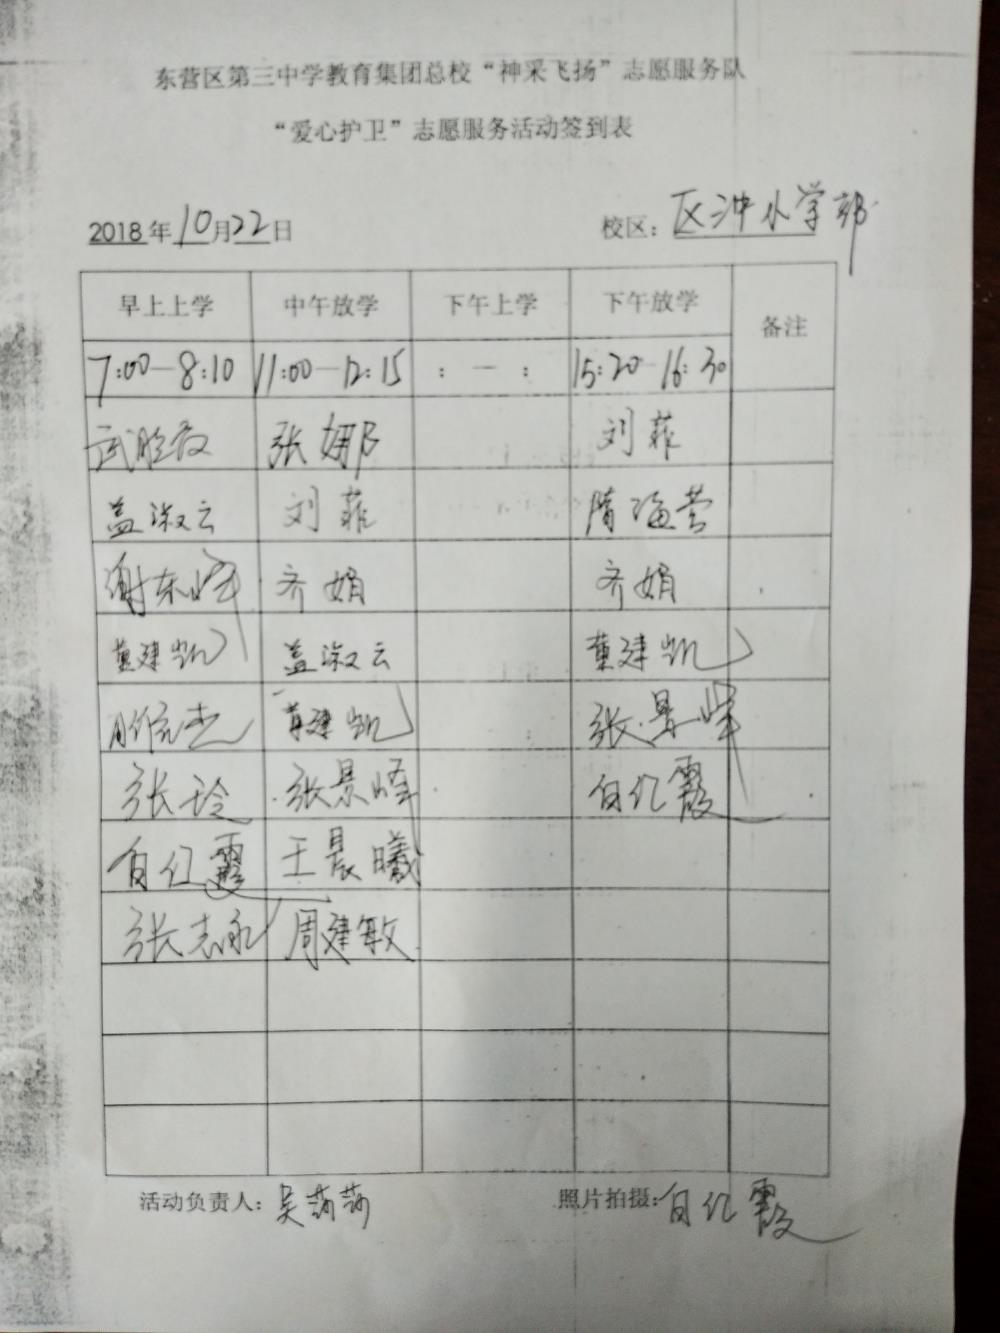 东营区第三中学教育集团总校“神采飞扬”志愿服务队
“爱心护卫”志愿服务活动签到表
2018年10月22日 校区：区冲小学部
早上上学 中午放学 下午上学 下午放学 备注
7:00—8:10 11:00—12:15 : — : 15:20-16:30
张娜 刘菲
盖淑云 刘菲 隋海营
谢东峰 齐娟 齐娟
董建凯 盖淑云 董建凯
董建凯 张景峰
张玲 张景峰 白红霞
白红霞 王晨曦
张志永 周建敏
活动负责人：吴莎莎 照片拍摄：白红霞